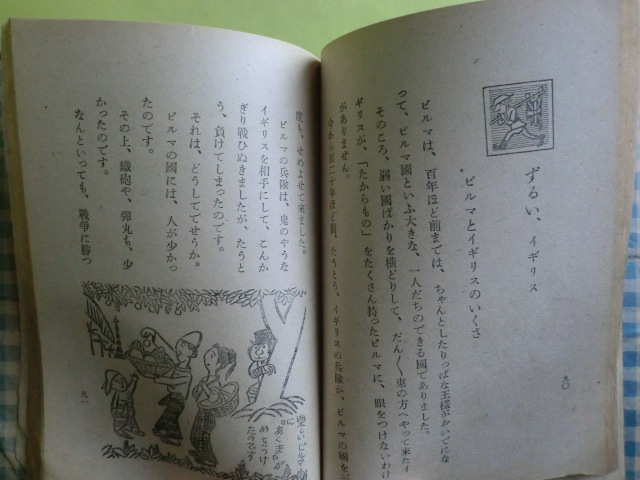 ずるい、イギリス
ビルマとイギリスのいくさ
ビルマは、百年ほど前までは、ちゃんとしたりっぱな王樣がおいでにな
って、ビルマ國といふ大きな、一人だちのできる國でありました。
そのころ、弱い國ばかりを橫どりして、だん〱東の方へやって來たイ
ギリスが、「たからもの」をたくさん持ったビルマに、眼をつけないわけ
がありません。
今から百二十年ほど前、たうとう、イギリスの兵隊が、ビルマの國を
九〇
度も、せめよせて來ました。
ビルマの兵隊は、鬼のやうな
イギリスを相手にして、こんか
ぎり戰ひぬきましたが、たうと
う、負けてしまったのです。
それは、どうしてでせうか。
ビルマの國には、人が少かっ
たのです。
その上、鐵砲や、彈丸も、少
かったのです。
なんといっても、戰爭に勝つ
樂しいビルマ
に
“あくま”が
めをつけ
たのです
九一